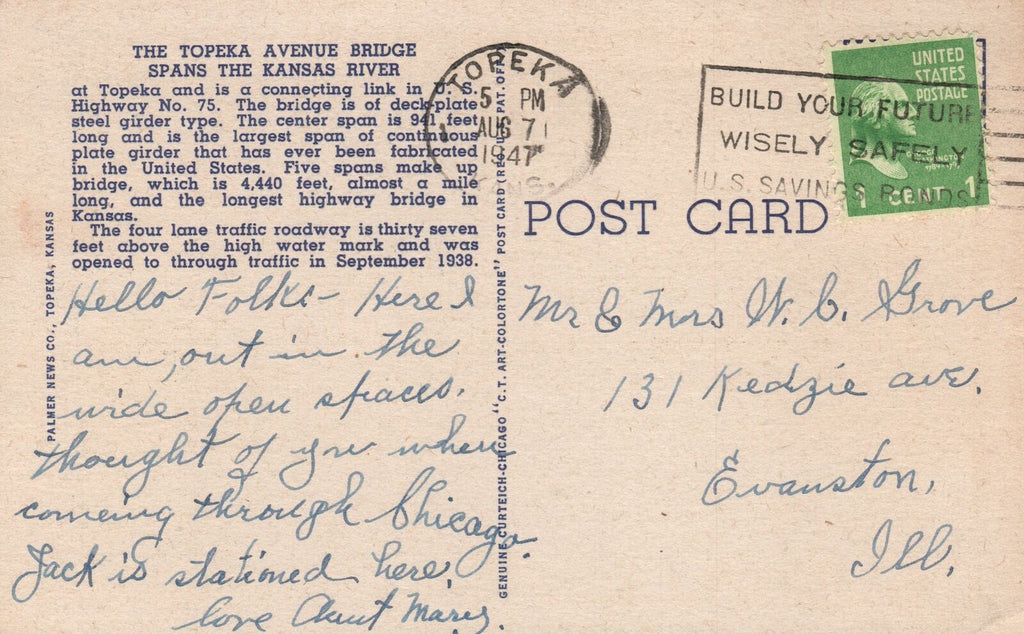 THE TOPEKA AVENUE BRIDGE
SPANS THE KANSAS RIVER
at Topeka and is a connecting link in U. S.
Highway No. 75. The bridge is of deck-plate
steel girder type. The center span is 941 feet
long and is the largest span of continuous
plate girder that has ever been fabricated
in the United States. Five spans make up
bridge, which is 4,440 feet, almost a mile
long, and the longest highway bridge in
Kansas.
The four lane traffic roadway is thirty seven
feet above the high water mark and was
opened to through traffic in September 1938.
PALMER NEWS CO., TOPEKA, KANSAS
Hello Folks - Here I
am, out in the
wide open spaces.
thought of you when
comeing through Chicago.
Jack is stationed here,
love Aunt Mary.
GENUINE CURTEICH-CHICAGO "C. T. ART-COLORTONE" POST CARD (REG. U.S. PAT. OFF.
TOPEKA
5 PM
AUG 7
1947
KANS.
BUILD YOUR FUTURE
WISELY SAFELY
U.S. SAVINGS BONDS
UNITED
STATES
POSTAGE
1 CENT 1
POST CARD
Mr & Mrs W. C. Grove
131 Kedzie ave.
Evanston,
Ill.